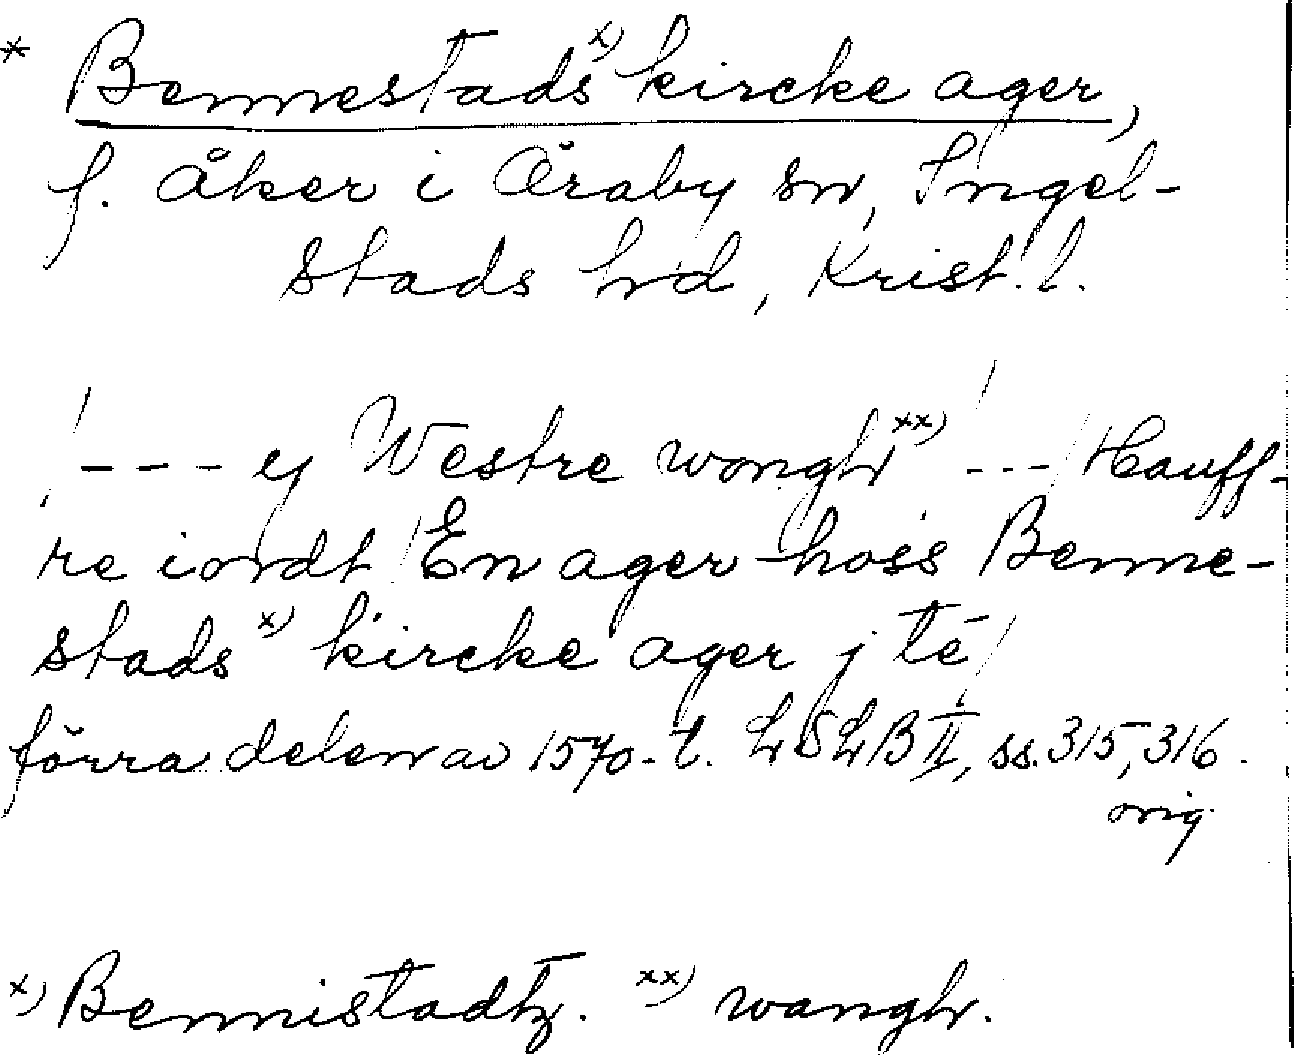 * Bennestads x) kircke ager,
f. åker i Öraby sn, Ingel-
stads hd, Krist. l.
/--- ej Westre wongh xx) --- / Hauff-
re iordt / En ager hoss Benne-
stads x) kircke ager j te /
förra delen av 1570-t. LSLB II, ss. 315, 316.
orig.
x) Bennistadtz. xx) wangh.